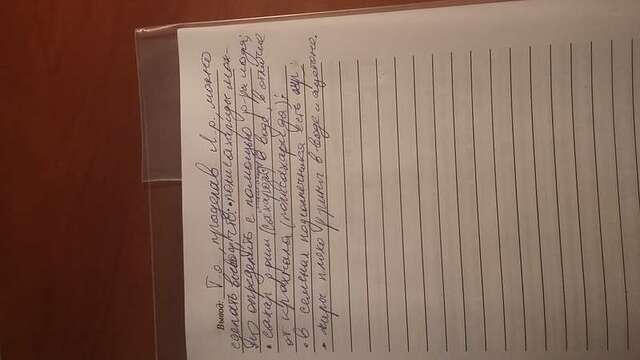 Вывод: Т.о., проделав л.р. можно
сделать вывод, что: • полисахариды мож-
но определить с помощью р-ра иода;
• сахар р-рим (сахароза) в воде, в отличие
от крахмала (полисахарида);
• в семенах подсолнечника есть жир;
• жиры плохо р-римы в воде и ацетоне.